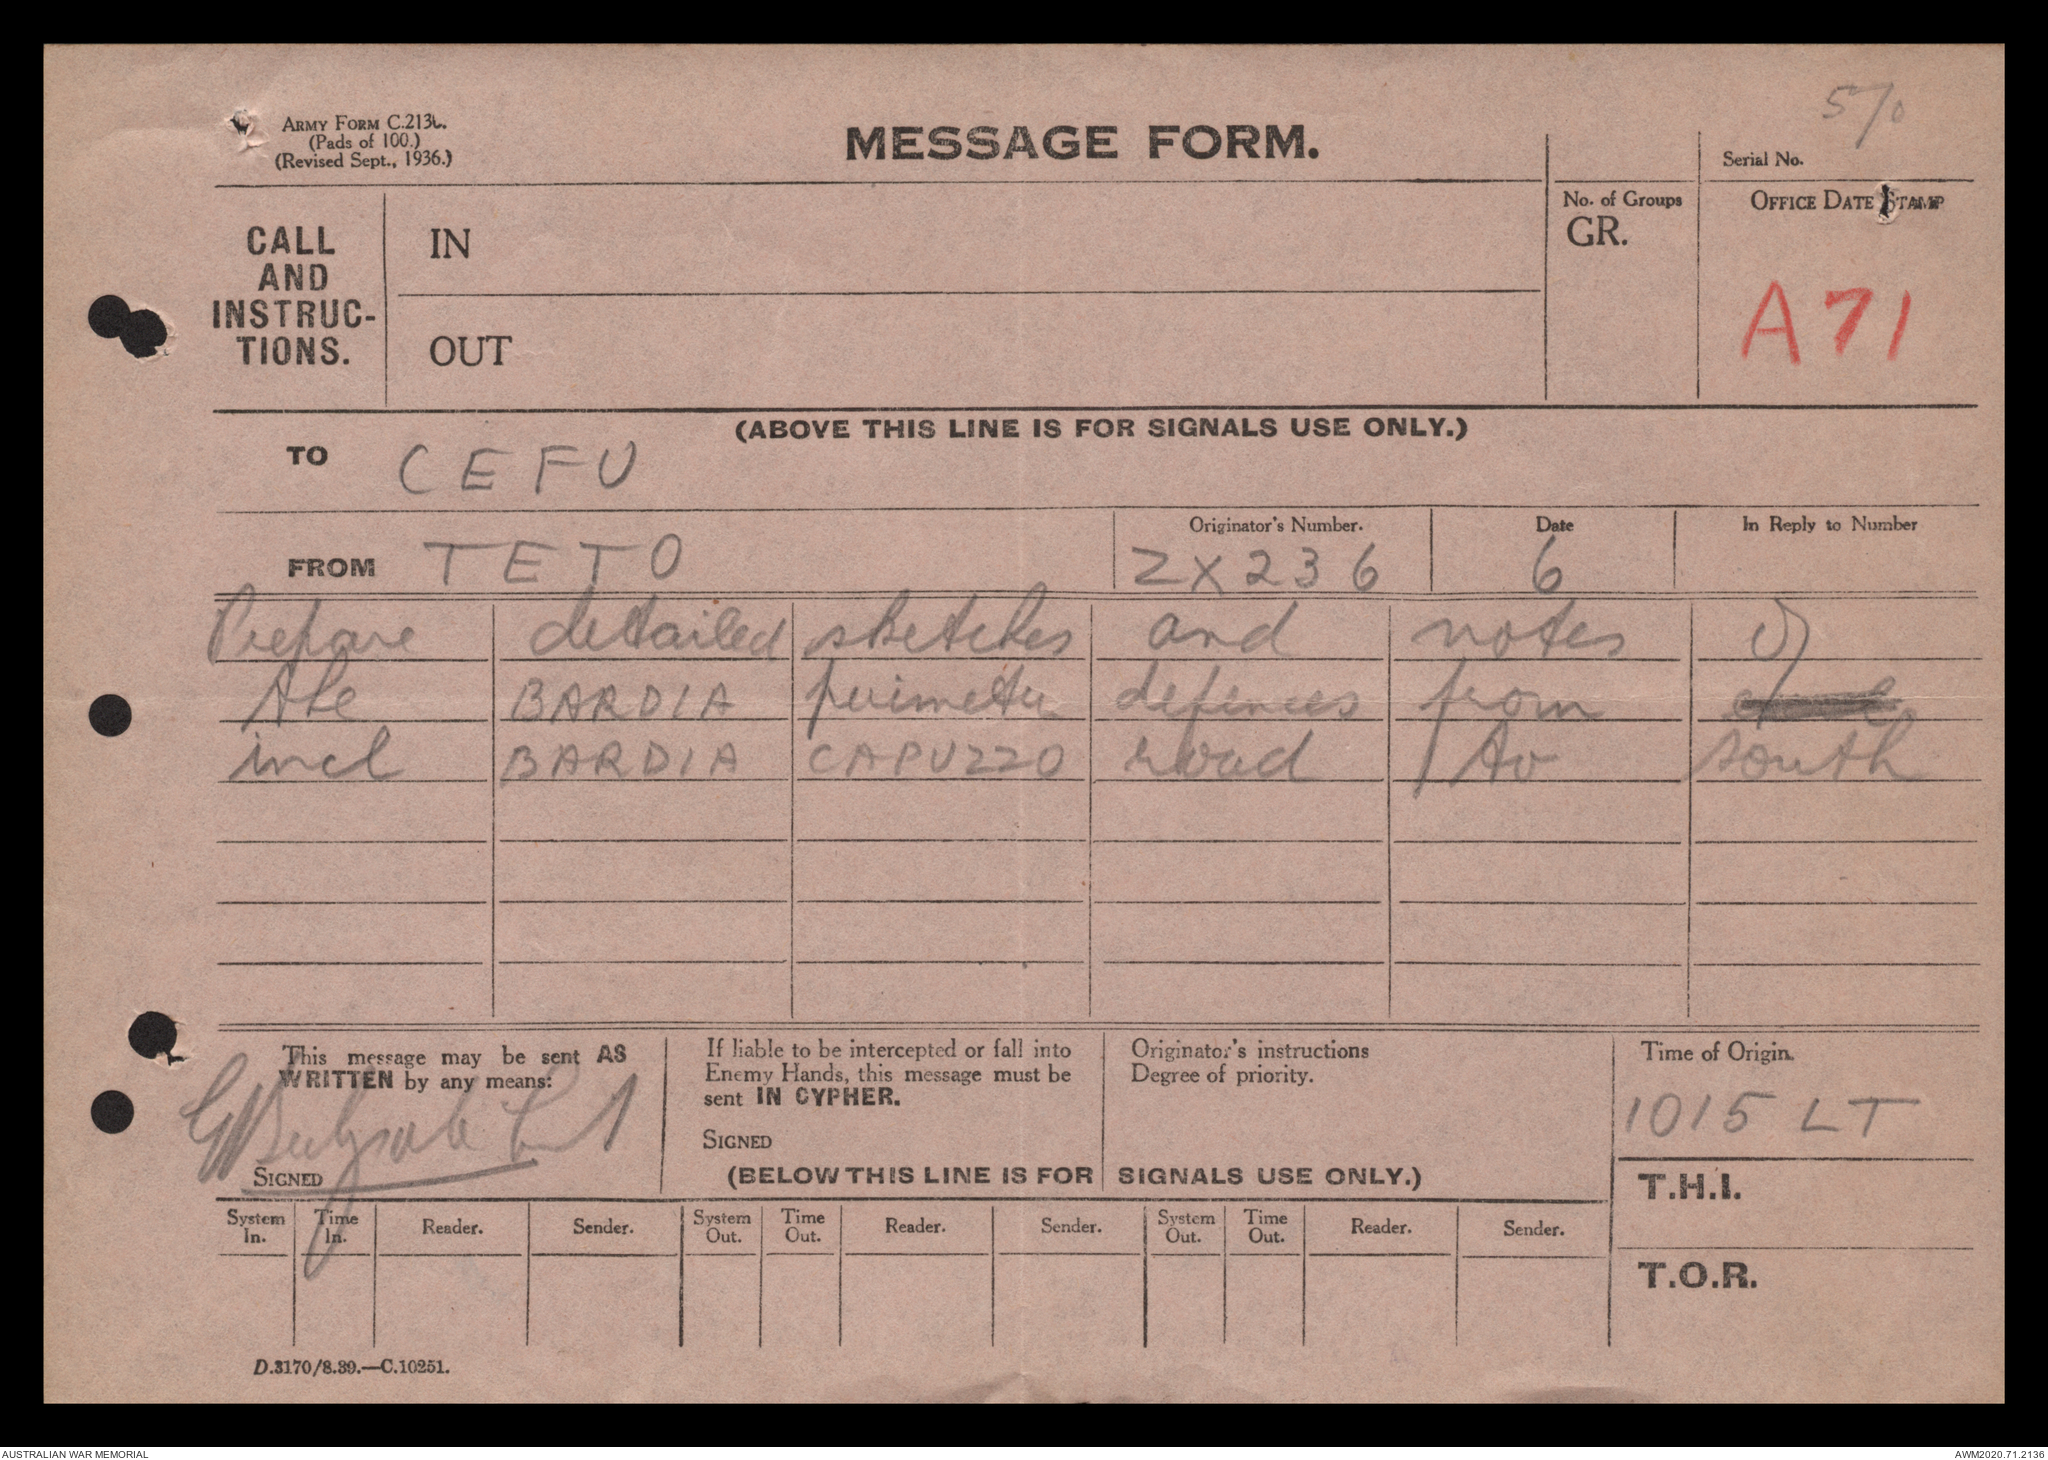 570
ARMY FORM C.213
(Pads of 100.)
(Revised Sept., 1936.)
MESSAGE FORM.
Serial No.
CALL AND INSTRUC-TIONS.
IN
No. of Groups
GR.
OFFICE DATE STAMP
OUT
A71
(ABOVE THIS LINE IS FOR SIGNALS USE ONLY.)
TO CEFU
FROM TETO
Originator's Number. ZX236
Date 6
In Reply to Number
Prepare detailed sketches and notes of
the BARDIA perimeter defences from
incl BARDIA CAPUZZO road to south
This message may be sent AS
WRITTEN by any means:
SIGNED
If liable to be intercepted or fall into
Enemy Hands, this message must be
sent IN CYPHER.
SIGNED
Originator's instructions
Degree of priority.
Time of Origin.
1015 LT
(BELOW THIS LINE IS FOR SIGNALS USE ONLY.)
T.H.I.
System In. Time In. Reader. Sender. System Out. Time Out. Reader. Sender. System Out. Time Out. Reader. Sender.
T.O.R.
D.3170/8.39.—C.10251.
AUSTRALIAN WAR MEMORIAL
AWM2020.71.2136